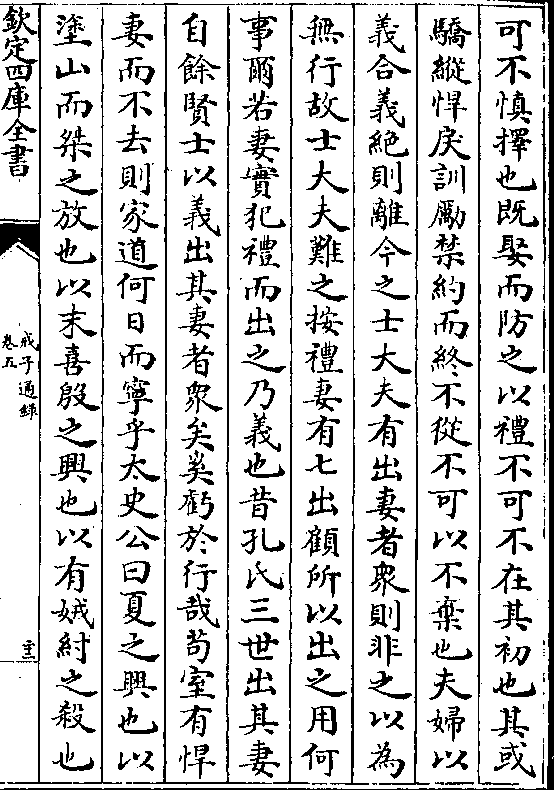 可不慎擇也既娶而防之以禮不可不在其初也其或
驕縱悍戾訓勵禁約而終不從不可以不棄也夫婦以
義合義絶則離今之士大夫有出妻者衆則非之以為
無行故士大夫難之按禮妻有七出顧所以出之用何
事爾若妻實犯禮而出之乃義也昔孔氏三世出其妻
自餘賢士以義出其妻者衆矣奚虧於行哉苟室有悍
妻而不去則家道何日而寧乎太史公曰夏之興也以
塗山而桀之放也以末喜殷之興也以有娀紂之殺也
欽定四庫全書
戒子通錄
卷五